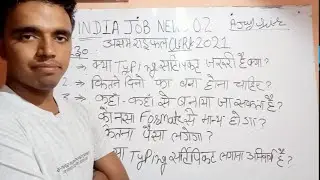 INDIA JOB NEWS 02
असम राइफल CLERK 2021
क्या Typing सर्टिफिकेट जरुरी है क्या?
कितने दिनों का बना होना चाहिए?
कहाँ-कहाँ से बनाया जा सकता है?
कौनसा Formate से मान्य होगा?
कितना पैसा लगेगा?
क्या Typing सर्टिफिकेट लगाना अनिवार्य है?